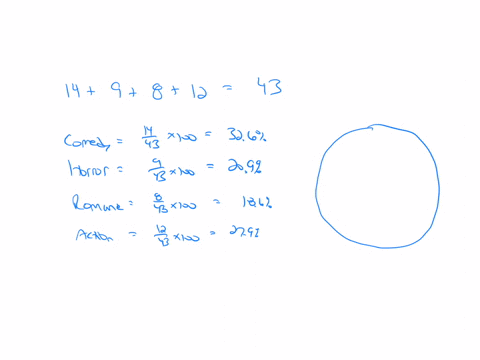 14 + 9 + 8 + 12 = 43
Comedy = 14/43 ×100 = 32.6%
Horror = 9/43 ×100 = 20.9%
Romance = 8/43 ×100 = 18.6%
Action = 12/43 ×100 = 27.9%